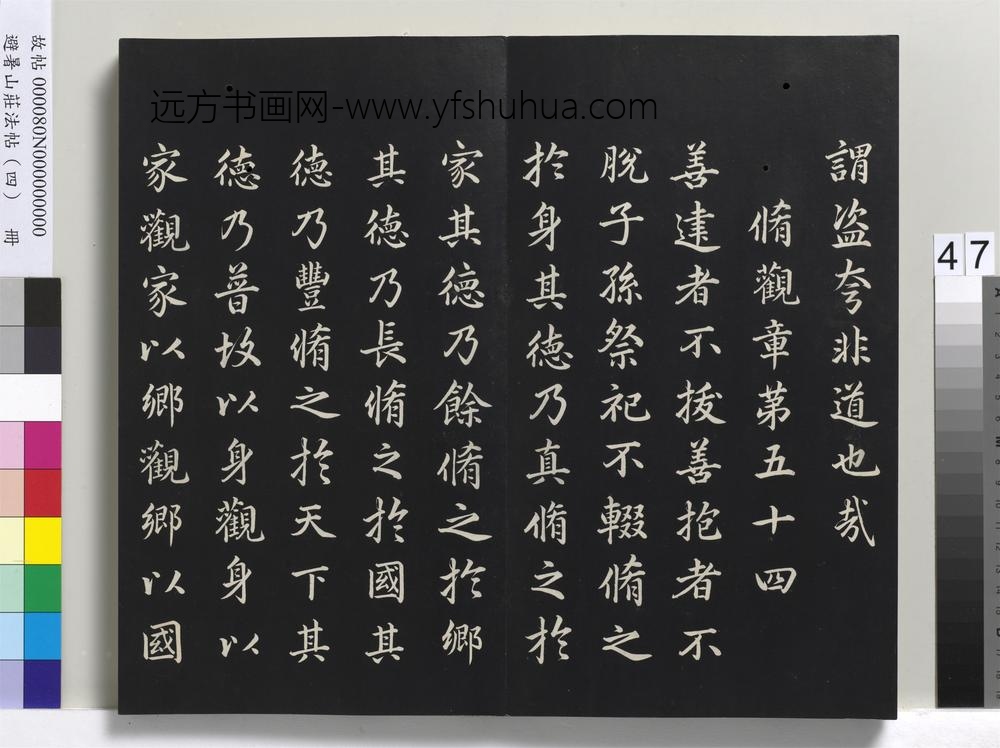 謂盗夸非道也哉
脩觀章第五十四
善建者不拔善抱者不
脫子孫祭祀不輟脩之
於身其徳乃真脩之於
家其徳乃餘脩之於鄉
其徳乃長脩之於國其
徳乃豐脩之於天下其
徳乃普故以身觀身以
家觀家以鄉觀鄉以國
远方书画网-www.yfshuhua.com
故帖 000080N000000000
避暑山莊法帖（四） 冊
47